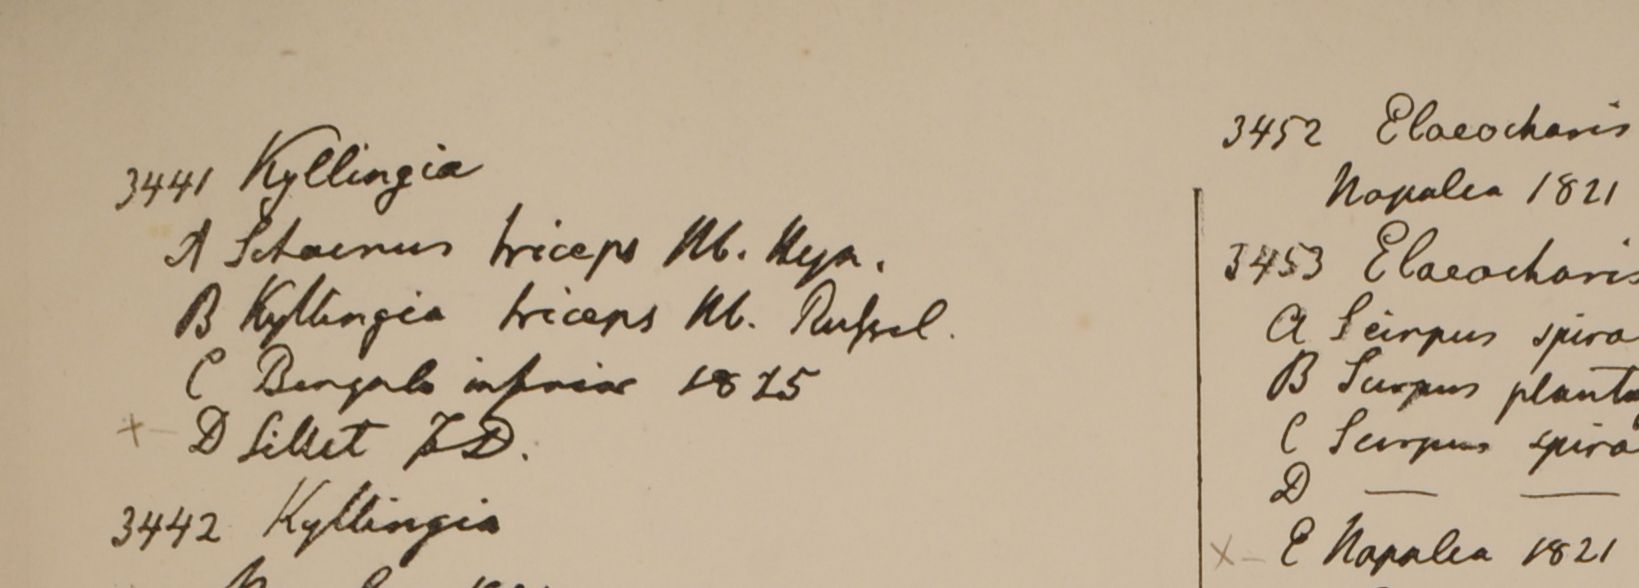 3441 Kyllingia
A Schoenus triceps Hb. Heyn.
B Kyllingia triceps Hb. Russel.
C Bengala inferior 1825
x - D Sillet F.D.
3442 Kyllingia
3452 Elaeocharis
Napalea 1821
3453 Elaeocharis
A Scirpus spira
B Scirpus planta
C Scirpus spira
D — —
x - E Napalea 1821